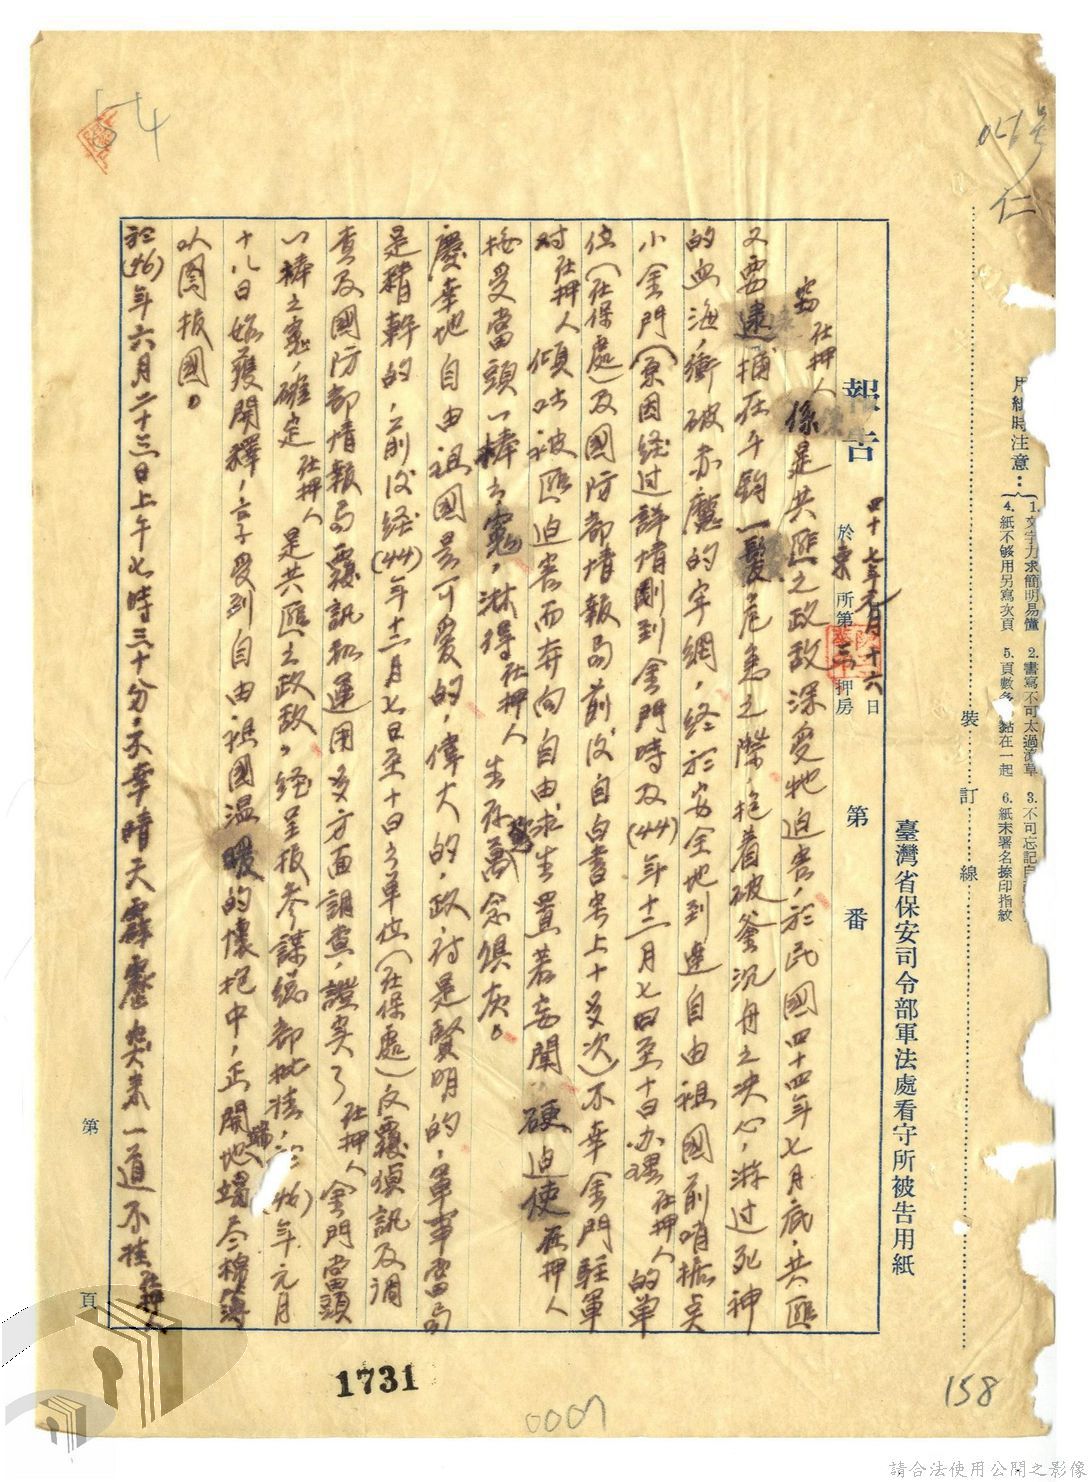 用紙時注意：
1.文字力求簡明易懂
2.書寫不可太過潦草
3.不可忘記自
4.紙不够用另寫次頁
5.頁數多 黏在一起
6.紙末署名捺印指紋
裝 訂 線
臺灣省保安司令部軍法處看守所被告用紙
報告 四十七年元月十六日 於東所第三押房 第 番
竊在押人係是共匪之政敵深受牠迫害，於民國四十四年七月底，共匪
又要逮捕在千鈞一髮危急之際，抱着破釜沉舟之决心，游过死神
的血海，衝破赤魔的牢網，終於安全地到達自由祖國前哨據点
小金門（原因经过詳情剛到金門時及(44)年十二月七日至十日办理在押人的单
位（在保處）及國防部情報局前後自白書寄上十多次）不幸金門駐軍
对在押人傾吐被匪迫害而奔向自由求生置若妄聞，硬迫使在押人
接受當頭一棒之寃，淋得在押人生存萬念俱灰。
慶幸地自由祖國是可愛的，偉大的，政府是賢明的，軍事當局
是精幹的，前后经(44)年十二月七日至十日之单位（在保處）反覆偵訊及調
查及國防部情報局覆訊和運用多方面調查，證实了在押人金門當頭
一棒之寃，確定在押人是共匪之政敵，经呈报参謀總部批准，於(46)年元月
十八日始獲開釋，享受到自由祖國温暖的懷抱中，正開始地竭尽棉薄
以圖报國。
於(46)年六月二十三日上午七時三十分，不幸晴天霹靂突来一道不准在押人
第 頁
仁
54
158
1731
0007
請合法使用公開之影像